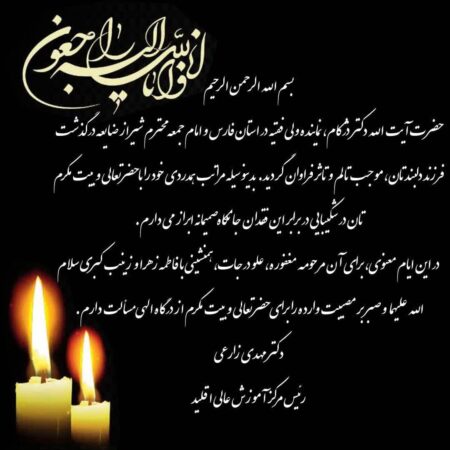 انا لله و انا الیه راجعون
بسم الله الرحمن الرحیم
حضرت آیت الله دکتر دژکام، نماینده ولی فقیه در استان فارس و امام جمعه محترم شیراز ضایعه درگذشت
فرزند دلبندتان، موجب تالم و تاثر فراوان گردید. بدینوسیله مراتب همدردی خود را با حضرتعالی و بیت مکرم
تان در شکیبایی در برابر این فقدان جانکاه صمیمانه ابراز می دارم.
در این ایام معنوی، برای آن مرحومه مغفوره، علو درجات، همنشینی با فاطمه زهرا و زینب کبری سلام
الله علیهما و صبر بر مصیبت وارده را برای حضرتعالی و بیت مکرم از درگاه الهی مسألت دارم.
دکتر مهدی زارعی
رئیس مرکز آموزش عالی اقلید